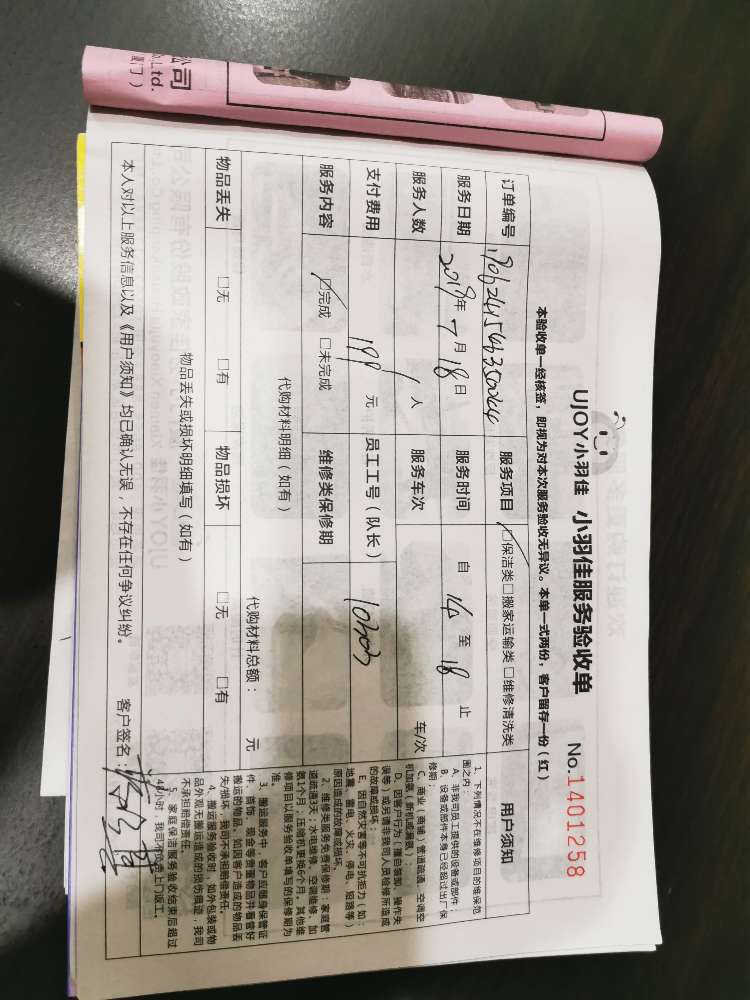 司
Ltd.
厦门）
UJOY小羽佳 小羽佳服务验收单
No.1401258
本验收单一经核签，即视为对本次服务验收无异议。本单一式两份，客户留存一份（红）
订单编号
服务项目 □保洁类□搬家运输类□维修清洗类
服务日期 2019年 7月 18日 服务时间 自 14 至 18 止
服务人数 1 人 服务车次 车/次
支付费用 199 元 员工工号（队长） 10303
服务内容 □完成 □未完成 维修类保修期
代购材料明细（如有） 代购材料总额： 元
物品丢失 □无 □有 物品损坏 □无 □有
物品丢失或损坏明细填写（如有）
本人对以上服务信息以及《用户须知》均已确认无误，不存在任何争议纠纷。 客户签名：
用户须知
1、下列情况不在维修项目的维保范
围之内：
A、非我司员工提供的设备或部件；
B、设备或部件本身已经超过出厂保
修期；
C、商业（商铺）管道疏通、空调空
机加氨（新机或漏氨）；
D、因客户行为（擅自装卸、操作失
误等）或另请非我司人员检修所造成
的故障或损坏；
E、因自然灾害等不可抗拒力（如：
地震、雷电、火灾、停电、短路等）
原因造成的故障或损坏。
2、维修类服务免费保修期：家庭管
道疏通3天；水电维修、空调维修、加
氨1个月，压缩机更换6个月，其他维
修项目以服务验收单填写的保修期为
准。
3、搬运服务中，客户应随身保管证
件、首饰、现金等贵重物品并看管好
搬运的物品，如因客户造成的物品丢
失/损坏，我司不承担赔偿责任。
4、搬运服务验收时，如外包装或物
品外观无搬运造成的损伤痕迹，我司
不承担赔偿责任。
5、家庭保洁服务验收结束后超过
小时，我司不负责上门返工。